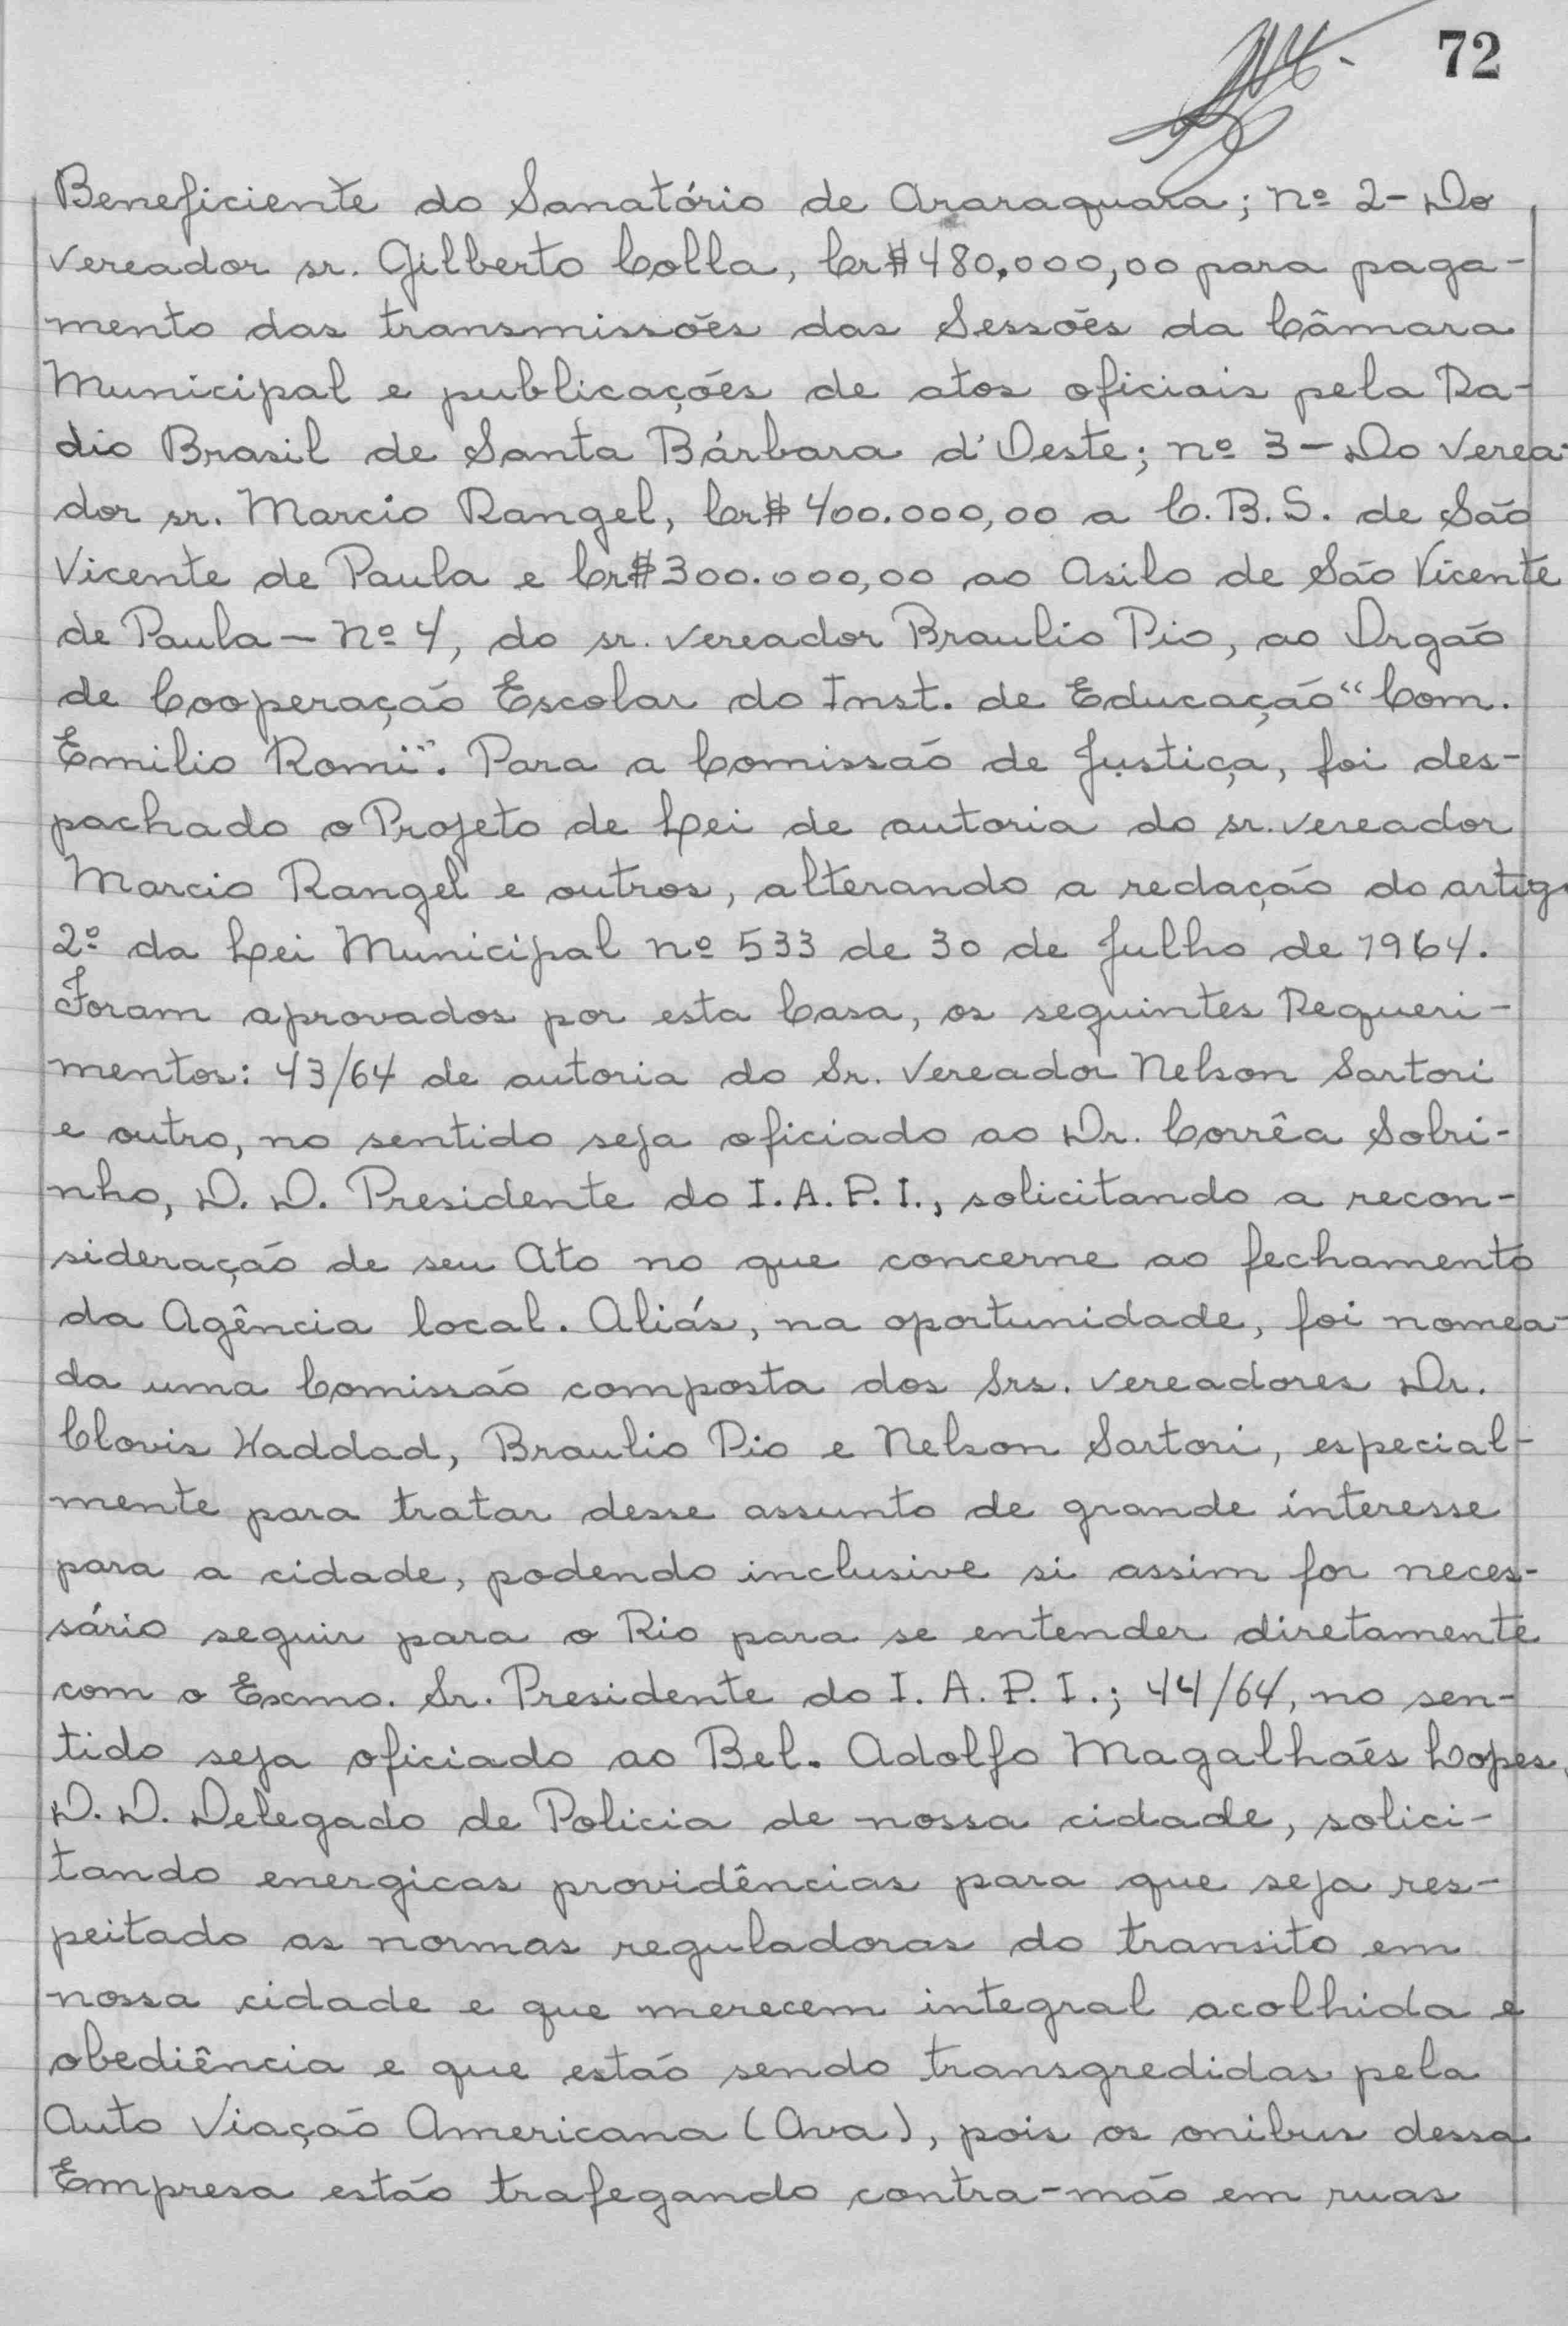 72
Beneficiente do Sanatório de Araraquara; nº 2- Do
vereador sr. Gilberto Colla, Cr$ 480.000,00 para paga-
mento das transmissões das Sessões da Câmara
Municipal e publicações de atos oficiais pela Ra-
dio Brasil de Santa Bárbara d'Oeste; nº 3 - Do Verea-
dor sr. Marcio Rangel, Cr$ 400.000,00 a C.B.S. de São
Vicente de Paula e Cr$ 300.000,00 ao Asilo de São Vicente
de Paula - Nº 4, do sr. vereador Braulio Pio, ao Orgão
de Cooperação Escolar do Inst. de Educação "Com.
Emilio Romi". Para a Comissão de Justiça, foi des-
pachado o Projeto de Lei de autoria do sr. vereador
Marcio Rangel e outros, alterando a redação do artigo
2º da Lei Municipal nº 533 de 30 de Julho de 1964.
Foram aprovados por esta Casa, os seguintes Requeri-
mentos: 43/64 de autoria do Sr. Vereador Nelson Sartori
e outro, no sentido seja oficiado ao Dr. Corrêa Sobri-
nho, D. D. Presidente do I. A. P. I., solicitando a recon-
sideração de seu Ato no que concerne ao fechamento
da Agência local. Aliás, na oportunidade, foi nomea-
da uma Comissão composta dos Srs. Vereadores Dr.
Clovis Haddad, Braulio Pio e Nelson Sartori, especial-
mente para tratar desse assunto de grande interesse
para a cidade, podendo inclusive si assim for neces-
sário seguir para o Rio para se entender diretamente
com o Exmo. Sr. Presidente do I. A. P. I.; 44/64, no sen-
tido seja oficiado ao Bel. Adolfo Magalhães Lopes,
D. D. Delegado de Policia de nossa cidade, solici-
tando energicas providências para que seja res-
peitado as normas reguladoras do transito em
nossa cidade e que merecem integral acolhida e
obediência e que estão sendo transgredidas pela
Auto Viação Americana (Ava), pois os onibus dessa
Empresa estão trafegando contra-mão em ruas